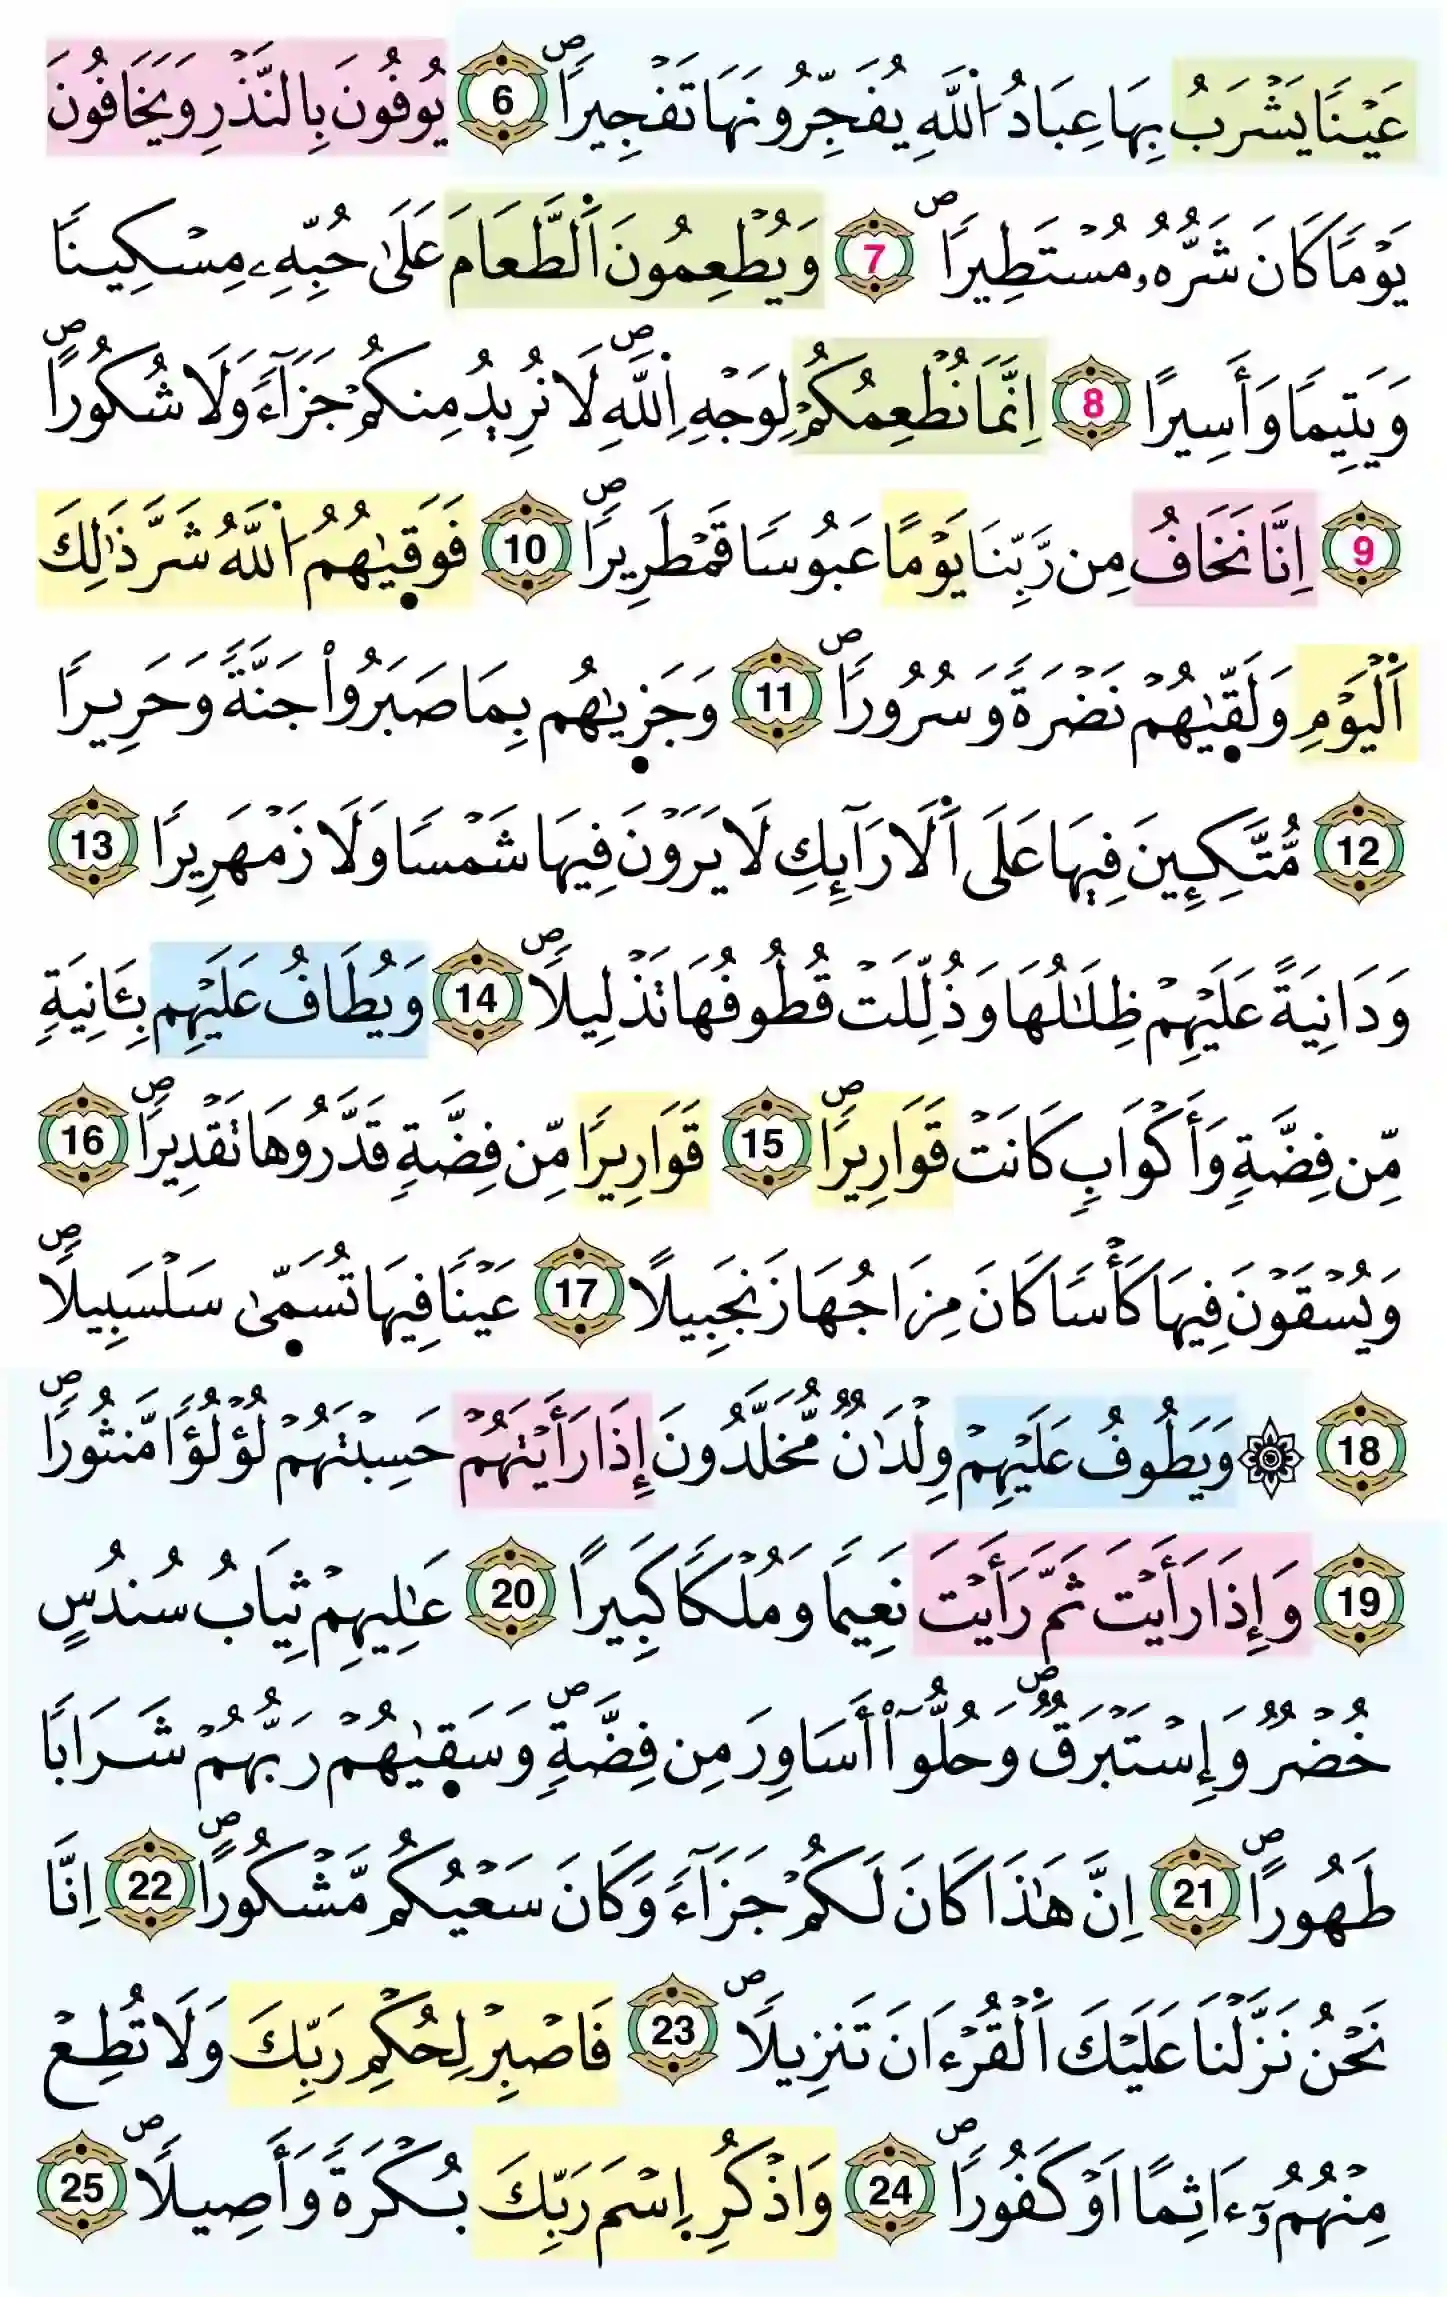 عَيْنًا يَشْرَبُ بِهَا عِبَادُ اُ۬للَّهِ يُفَجِّرُونَهَا تَفْجِيراً ص 6 يُوفُونَ بِالنَّذْرِ وَيَخَافُونَ
يَوْمًا كَانَ شَرُّهُۥ مُسْتَطِيراً ص 7 وَيُطْعِمُونَ اَ۬لطَّعَامَ عَلَىٰ حُبِّهِۦ مِسْكِينًا
وَيَتِيمًا وَأَسِيرًا 8 اِنَّمَا نُطْعِمُكُمْ لِوَجْهِ اِ۬للَّهِ ص لَا نُرِيدُ مِنكُمْ جَزَآءً وَلَا شُكُوراً ص
9 اِنَّا نَخَافُ مِن رَّبِّنَا يَوْمًا عَبُوسًا قَمْطَرِيراً ص 10 فَوَقٜىٰهُمُ اُ۬للَّهُ شَرَّ ذَٰلِكَ
اَ۬لْيَوْمِ وَلَقّٜىٰهُمْ نَضْرَةً وَسُرُوراً ص 11 وَجَزٜىٰهُم بِمَا صَبَرُواْ جَنَّةً وَحَرِيرًا
12 مُّتَّكِـِٕينَ فِيهَا عَلَى اَ۬لَارَآئِكِ لَا يَرَوْنَ فِيهَا شَمْسًا وَلَا زَمْهَرِيرًا 13
وَدَانِيَةً عَلَيْهِمْ ظِلَٰلُهَا وَذُلِّلَتْ قُطُوفُهَا تَذْلِيلاً ص 14 وَيُطَافُ عَلَيْهِم بِـَٔانِيَةٍ
مِّن فِضَّةٍ وَأَكْوَابٍ كَانَتْ قَوَارِيراً ص 15 قَوَارِيرًا مِّن فِضَّةٍ قَدَّرُوهَا تَقْدِيراً ص 16
وَيُسْقَوْنَ فِيهَا كَأْسًا كَانَ مِزَاجُهَا زَنجَبِيلًا 17 عَيْنًا فِيهَا تُسَمّٜىٰ سَلْسَبِيلاً ص
18 ۞ وَيَطُوفُ عَلَيْهِمْ وِلْدَٰنٌ مُّخَلَّدُونَ إِذَا رَأَيْتَهُمْ حَسِبْتَهُمْ لُؤْلُؤًا مَّنثُوراً ص
19 وَإِذَا رَأَيْتَ ثَمَّ رَأَيْتَ نَعِيمًا وَمُلْكًا كَبِيرًا 20 عَٰلِيهِمْ ثِيَابُ سُندُسٍ
خُضْرٌ وَإِسْتَبْرَقٌ ص وَحُلُّوٓاْ أَسَاوِرَ مِن فِضَّةٍ ص وَسَقٜىٰهُمْ رَبُّهُمْ شَرَابًا
طَهُوراً ص 21 اِنَّ هَٰذَا كَانَ لَكُمْ جَزَآءً وَكَانَ سَعْيُكُم مَّشْكُوراً ص 22 اِنَّا
نَحْنُ نَزَّلْنَا عَلَيْكَ اَ۬لْقُرْءَانَ تَنزِيلاً ص 23 فَاصْبِرْ لِحُكْمِ رَبِّكَ وَلَا تُطِعْ
مِنْهُمُۥٓ ءَاثِمًا اَوْ كَفُوراً ص 24 وَاذْكُرِ اِ۪سْمَ رَبِّكَ بُكْرَةً وَأَصِيلاً ص 25